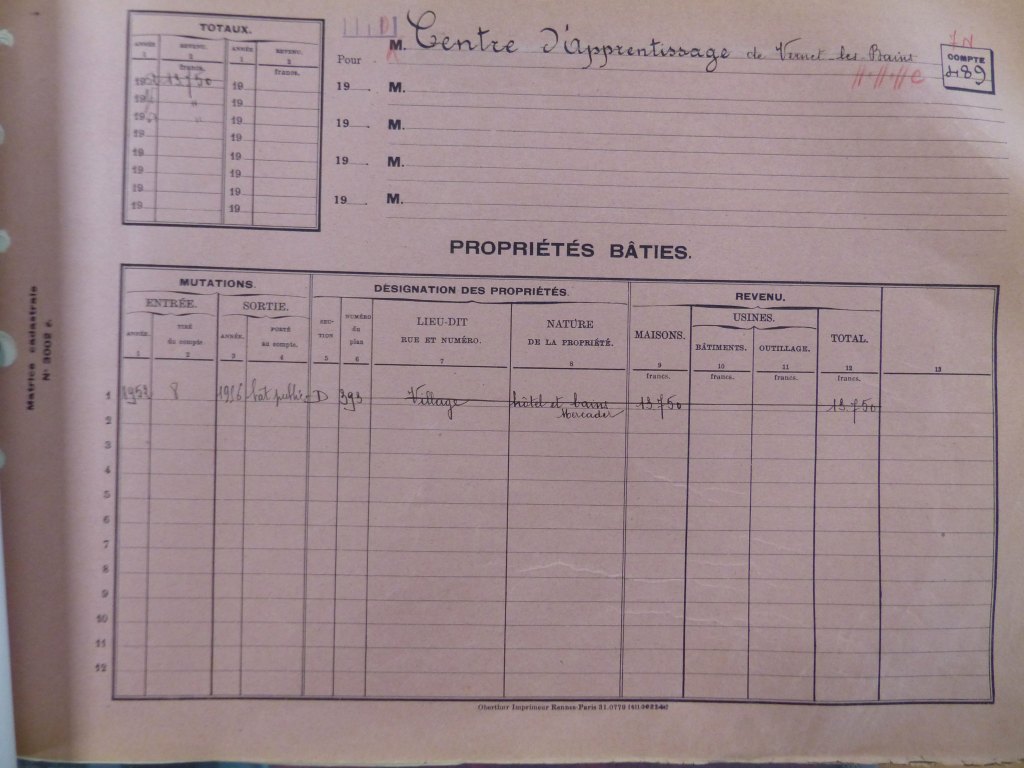 TOTAUX.
ANNÉE REVENU. ANNÉE REVENU.
1 2 1 2
francs. francs.
19 13750 19
19 " 19
19 " 19
19 19
19 19
19 19
19 19
19 19
Pour M. Centre d'Apprentissage de Vernet-les-Bains
COMPTE
489
19 M.
19 M.
19 M.
19 M.
PROPRIÉTÉS BÂTIES.
MUTATIONS. DÉSIGNATION DES PROPRIÉTÉS. REVENU.
ENTRÉE. SORTIE. SECTION NUMÉRO du plan LIEU-DIT RUE ET NUMÉRO. NATURE DE LA PROPRIÉTÉ. MAISONS. USINES. TOTAL.
ANNÉE. TIRÉ du compte ANNÉE. PORTÉ au compte. BÂTIMENTS. OUTILLAGE.
1 2 3 4 5 6 7 8 9 10 11 12 13
francs. francs. francs. francs.
1 1952 8 1956 bât public D 393 Village hôtel et bains 13750 13750
2 Mercader
3
4
5
6
7
8
9
10
11
12
Oberthur Imprimeur Rennes-Paris
Matrice cadastrale
N° 3002 c.